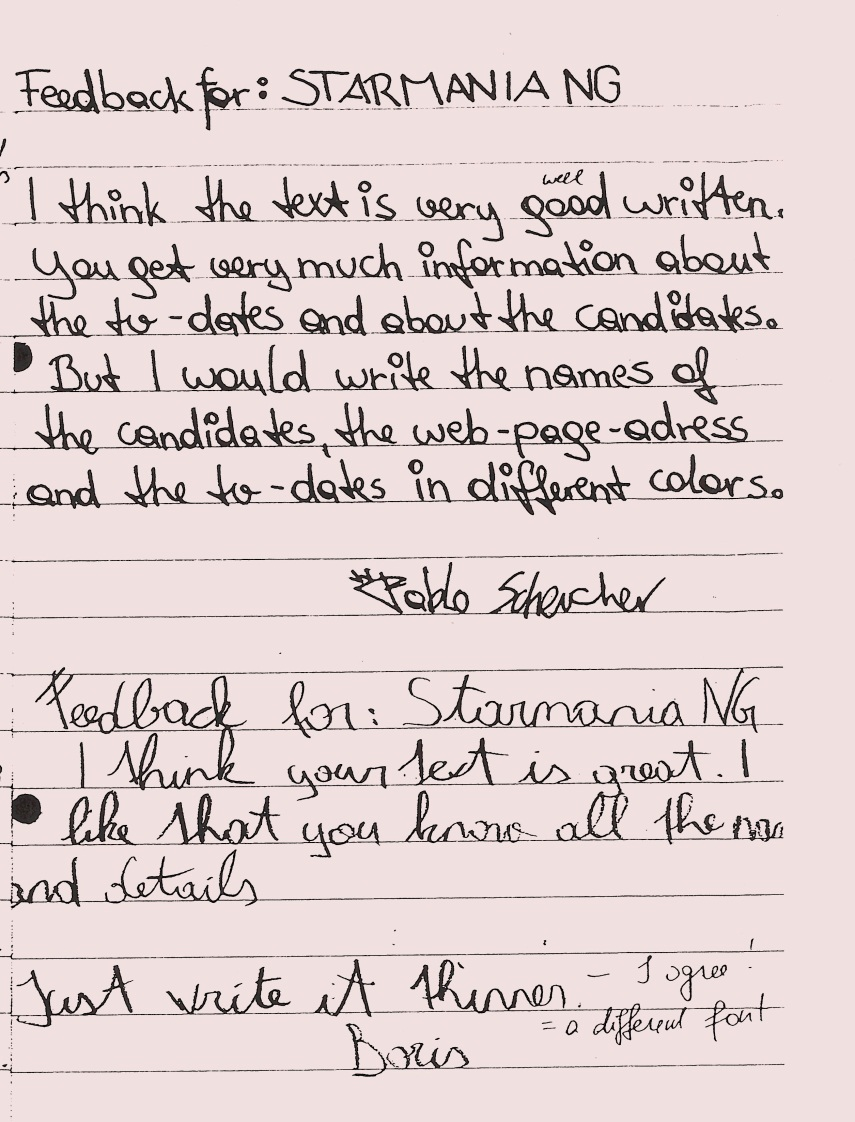 Feedback for: STARMANIA NG
well
I think the text is very good written.
You get very much information about
the to-dates and about the candidates.
But I would write the names of
the candidates, the web-page-adress
and the to-dates in different colors.
Pablo
Feedback for: Starmania NG
I think your text is great. I
like that you know all the
and details
Just write it thinner. - I agree!
= a different font
Boris